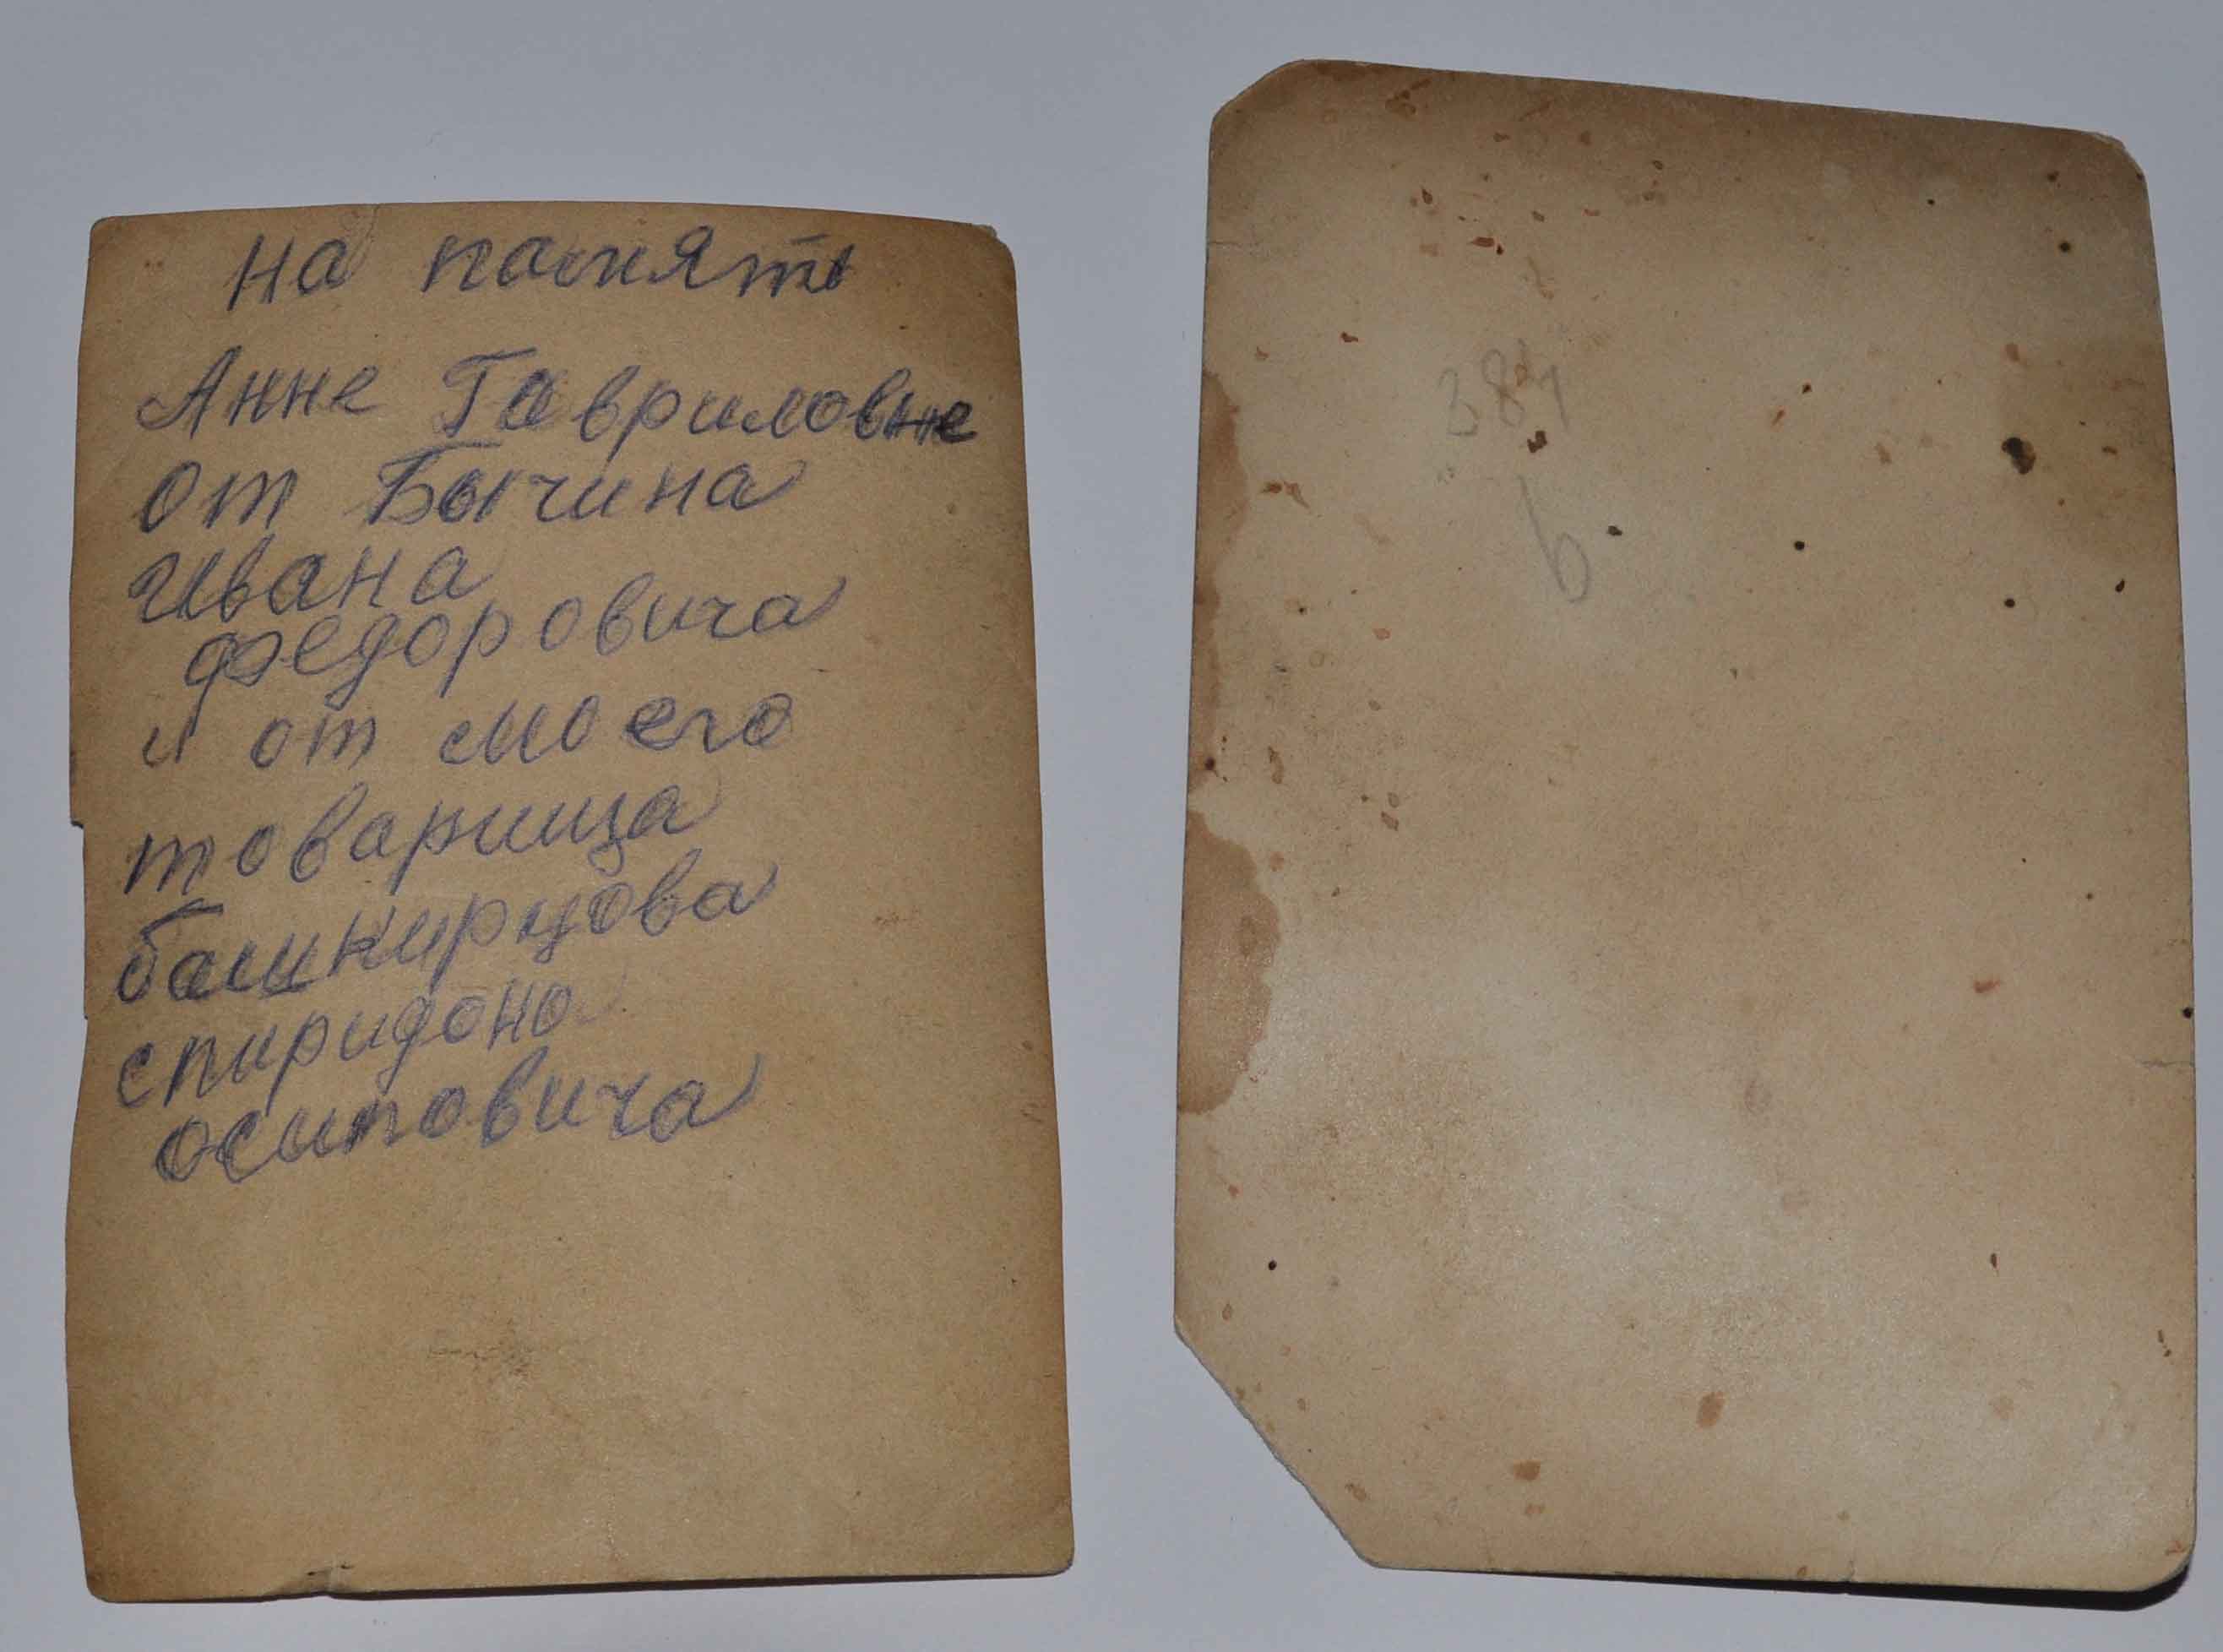 на память
Анне Гавриловне
от Бычина
Ивана
федоровича
и от моего
товарища
башкирцова
спиридона
осиповича
381
6